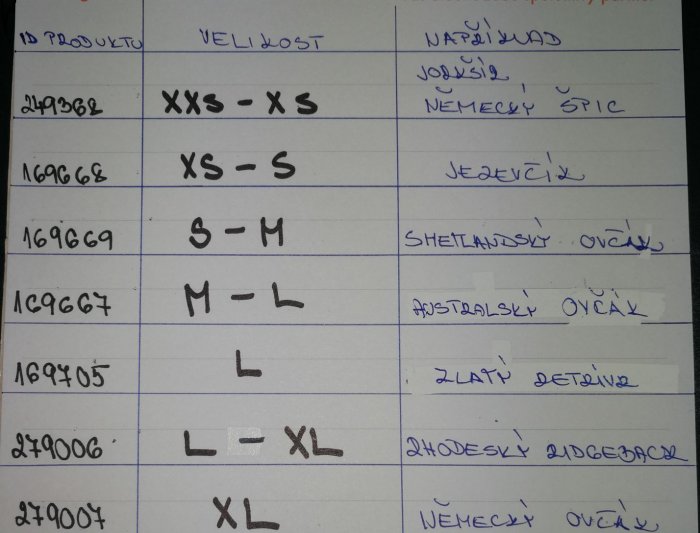 ID PRODUKTU VELIKOST NAPŘÍKLAD
JORKŠÍR
249368 XXS - XS NĚMECKÝ ŠPIC
169668 XS - S JEZEVČÍK
169669 S - M SHETLANDSKÝ OVČÁK
169667 M - L AUSTRALSKÝ OVČÁK
169705 L ZLATÝ RETRÍVR
279006 L - XL RHODESKÝ RIDGEBACK
279007 XL NĚMECKÝ OVČÁK